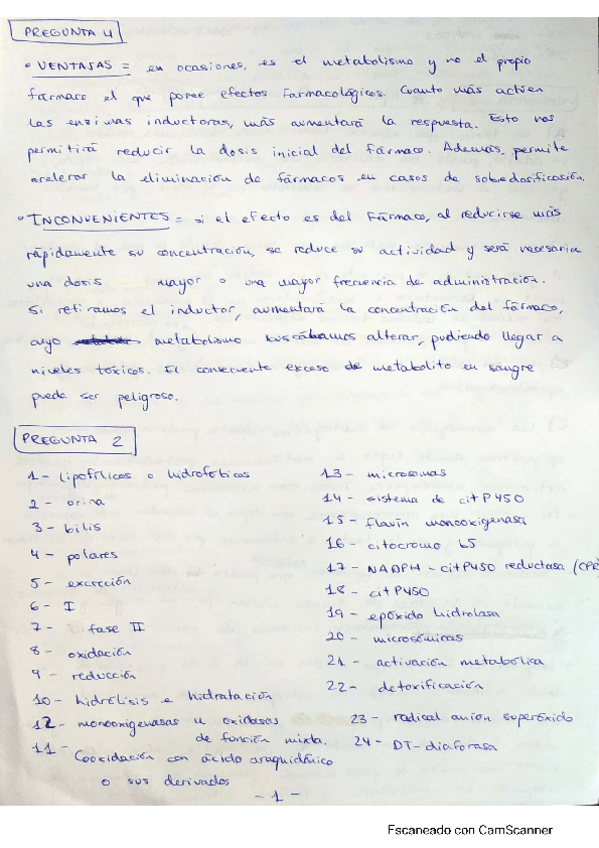 PREGUNTA 4
• VENTAJAS = en ocasiones, es el metabolismo y no el propio
fármaco el que posee efectos farmacológicos. Cuanto más activen
las enzimas inductoras, más aumentará la respuesta. Esto nos
permitirá reducir la dosis inicial del fármaco. Además, permite
acelerar la eliminación de fármacos en casos de sobredosificación.
• INCONVENIENTES = si el efecto es del fármaco, al reducirse más
rápidamente su concentración, se reduce su actividad y será necesaria
una dosis mayor o una mayor frecuencia de administración.
Si retiramos el inductor, aumentará la concentración del fármaco,
cuyo metabolismo buscábamos alterar, pudiendo llegar a
niveles tóxicos. El consecuente exceso de metabolito en sangre
puede ser peligroso.
PREGUNTA 2
1- lipofílicos o hidrofóbicos
2- orina
3- bilis
4- polares
5- excreción
6- I
7- fase II
8- oxidación
9- reducción
10- hidrólisis e hidratación
12- monooxigenasas u oxidasas
de función mixta.
11- Cooxidación con ácido araquidónico
o sus derivados
13- microsomas
14- sistema de cit P450
15- flavín monooxigenasa
16- citocromo b5
17- NADPH - cit P450 reductasa (CPR
18- cit P450
19- epóxido hidrolasa
20- microsómicas
21- activación metabólica
22- detoxificación
23- radical anión superóxido
24- DT-diaforasa
- 1 -
Escaneado con CamScanner